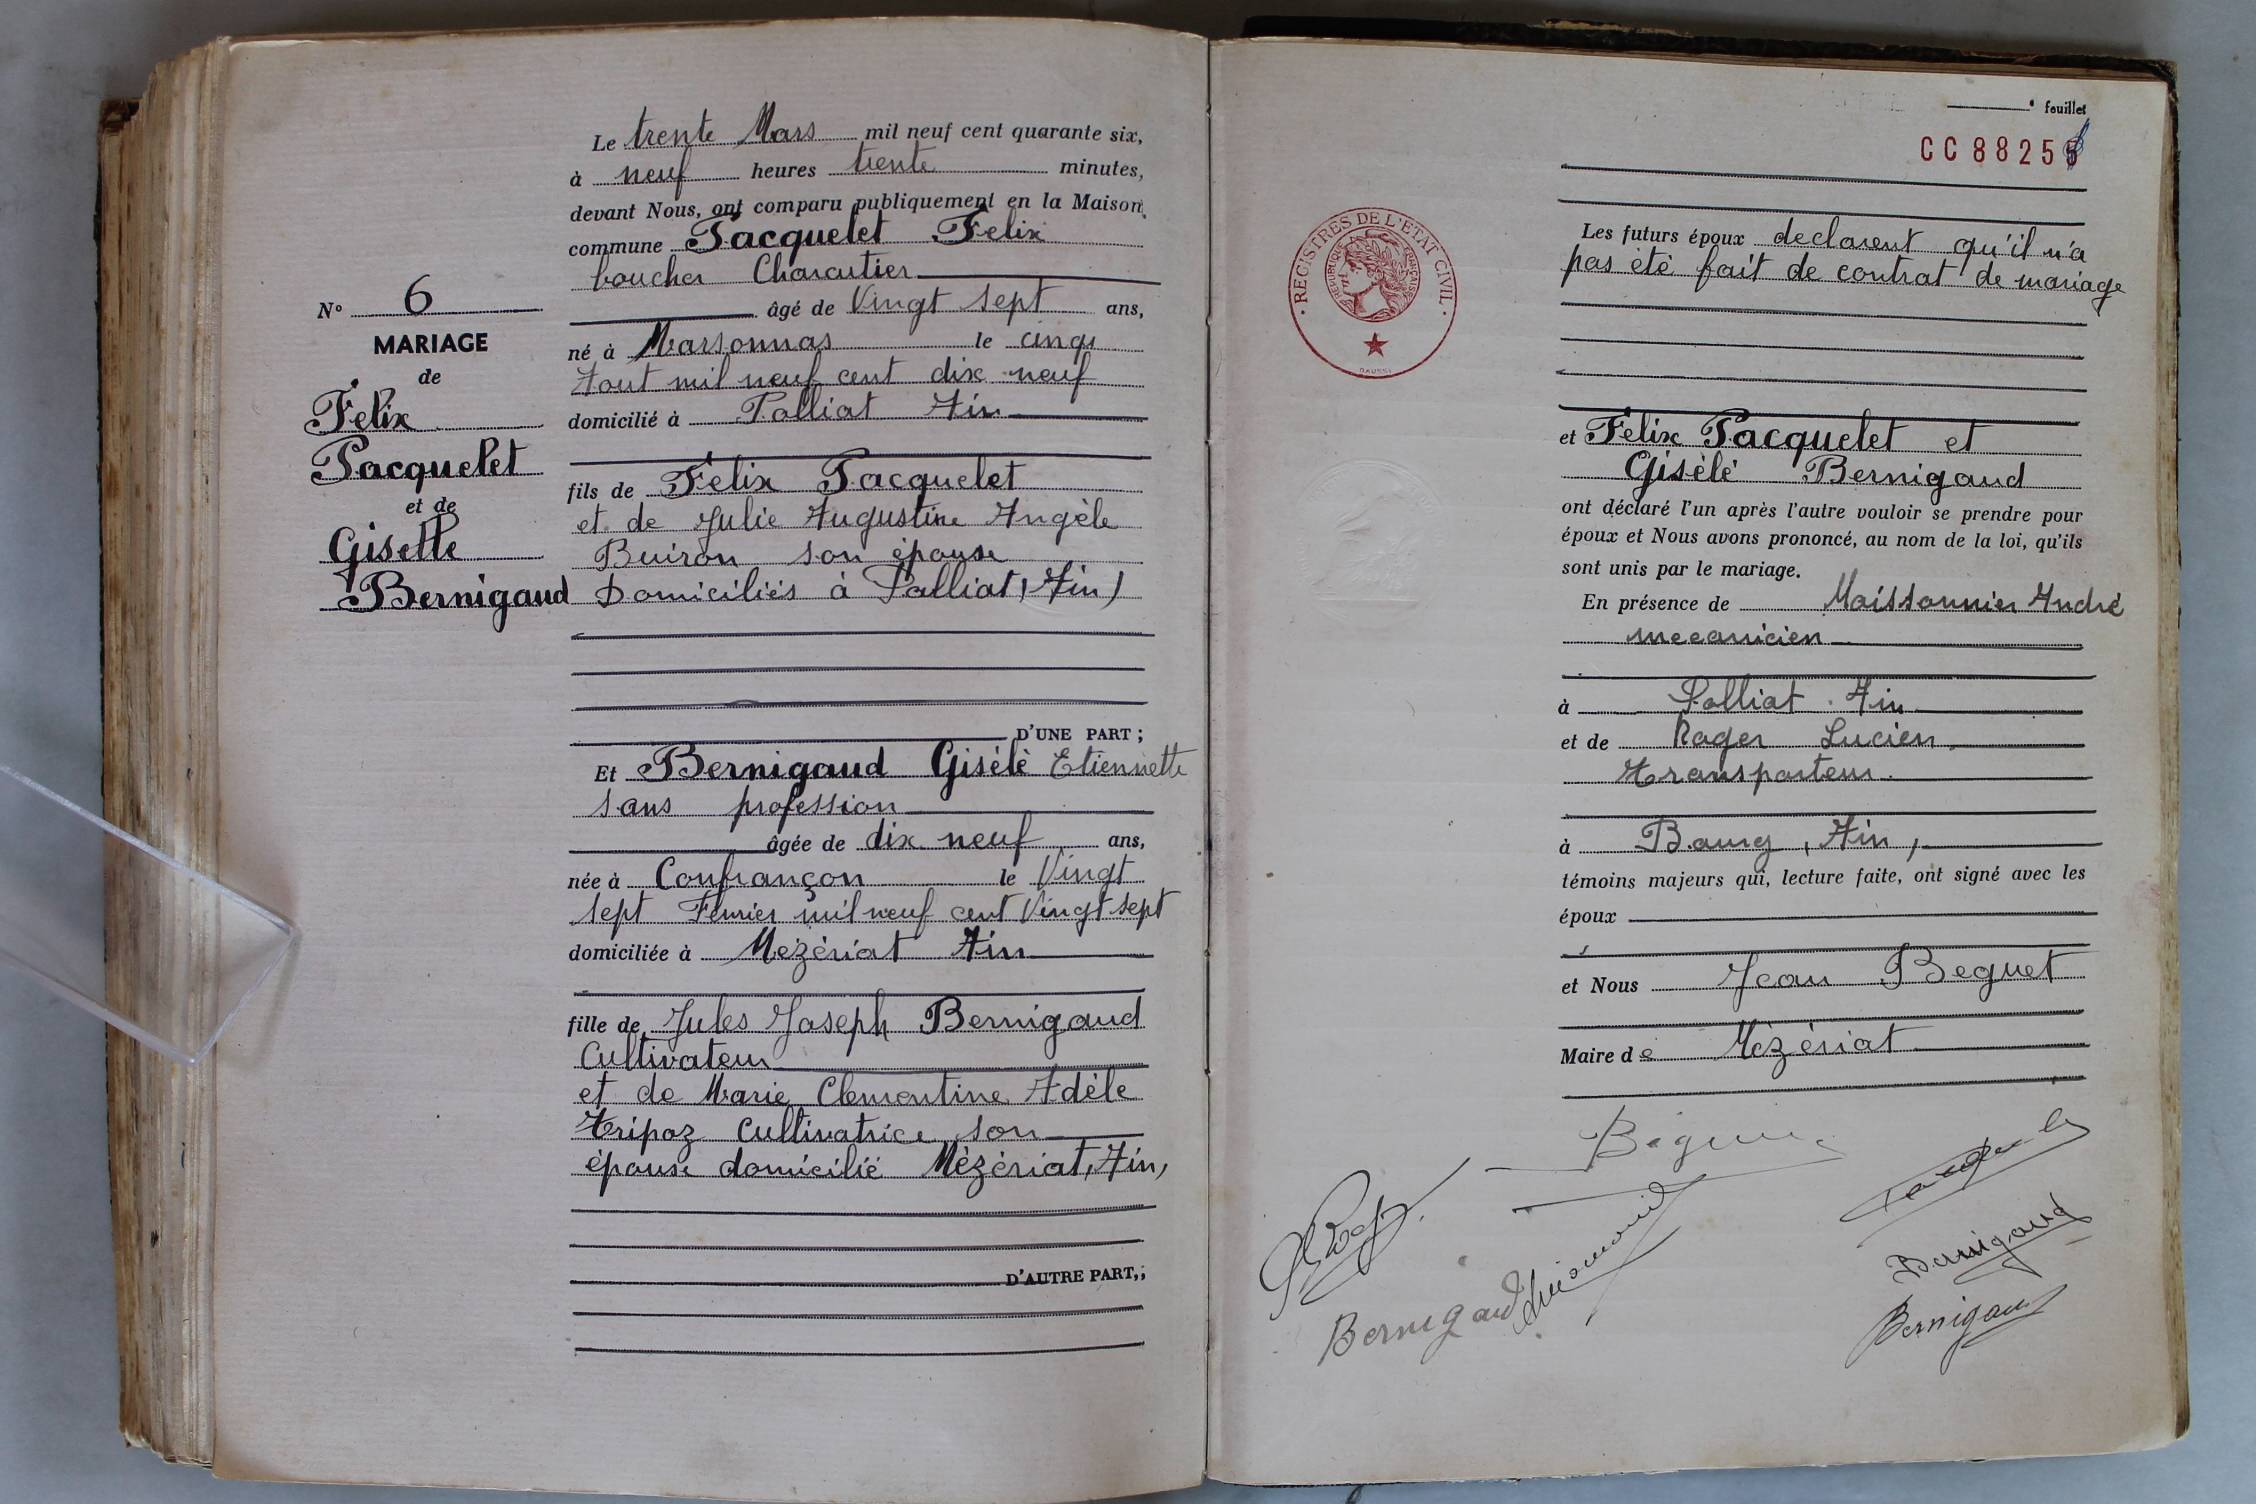 Le trente Mars mil neuf cent quarante six,
à neuf heures trente minutes,
devant Nous, ont comparu publiquement en la Maison
commune Pacquelet Felix
boucher Charcutier
âgé de Vingt sept ans,
né à Marsonnas le cinq
Aout mil neuf cent dix neuf
domicilié à Polliat Ain
fils de Felix Pacquelet
et de Julie Augustine Angèle
Buiron son épouse
Domiciliés à Polliat (Ain)
D'UNE PART ;
N° 6
MARIAGE
de
Felix
Pacquelet
et de
Giselle
Bernigaud
Et Bernigaud Gisèlè Etiennette
sans profession
âgée de dix neuf ans,
née à Confrançon le Vingt
sept Fevrier mil neuf cent Vingt sept
domiciliée à Mezériat Ain
fille de Jules Joseph Bernigaud
Cultivateur
et de Marie Clementine Adèle
Tripoz Cultivatrice son
épouse domicilié Mézériat, Ain,
D'AUTRE PART,;
feuillet
CC 8825
REGISTRES DE L'ETAT CIVIL
REPUBLIQUE FRANÇAISE
DAUSSI
Les futurs époux declarent qu'il n'a
pas été fait de contrat de mariage
et Felix Pacquelet et
Gisèlè Bernigaud
ont déclaré l'un après l'autre vouloir se prendre pour
époux et Nous avons prononcé, au nom de la loi, qu'ils
sont unis par le mariage.
En présence de Moissonnier André
mecanicien
à Polliat Ain
et de Roger Lucien
Transporteur
à Bourg, Ain,
témoins majeurs qui, lecture faite, ont signé avec les
époux
et Nous Jean Beguet
Maire de Mézériat
Bernigaud
Bernigaud
Bernigaud